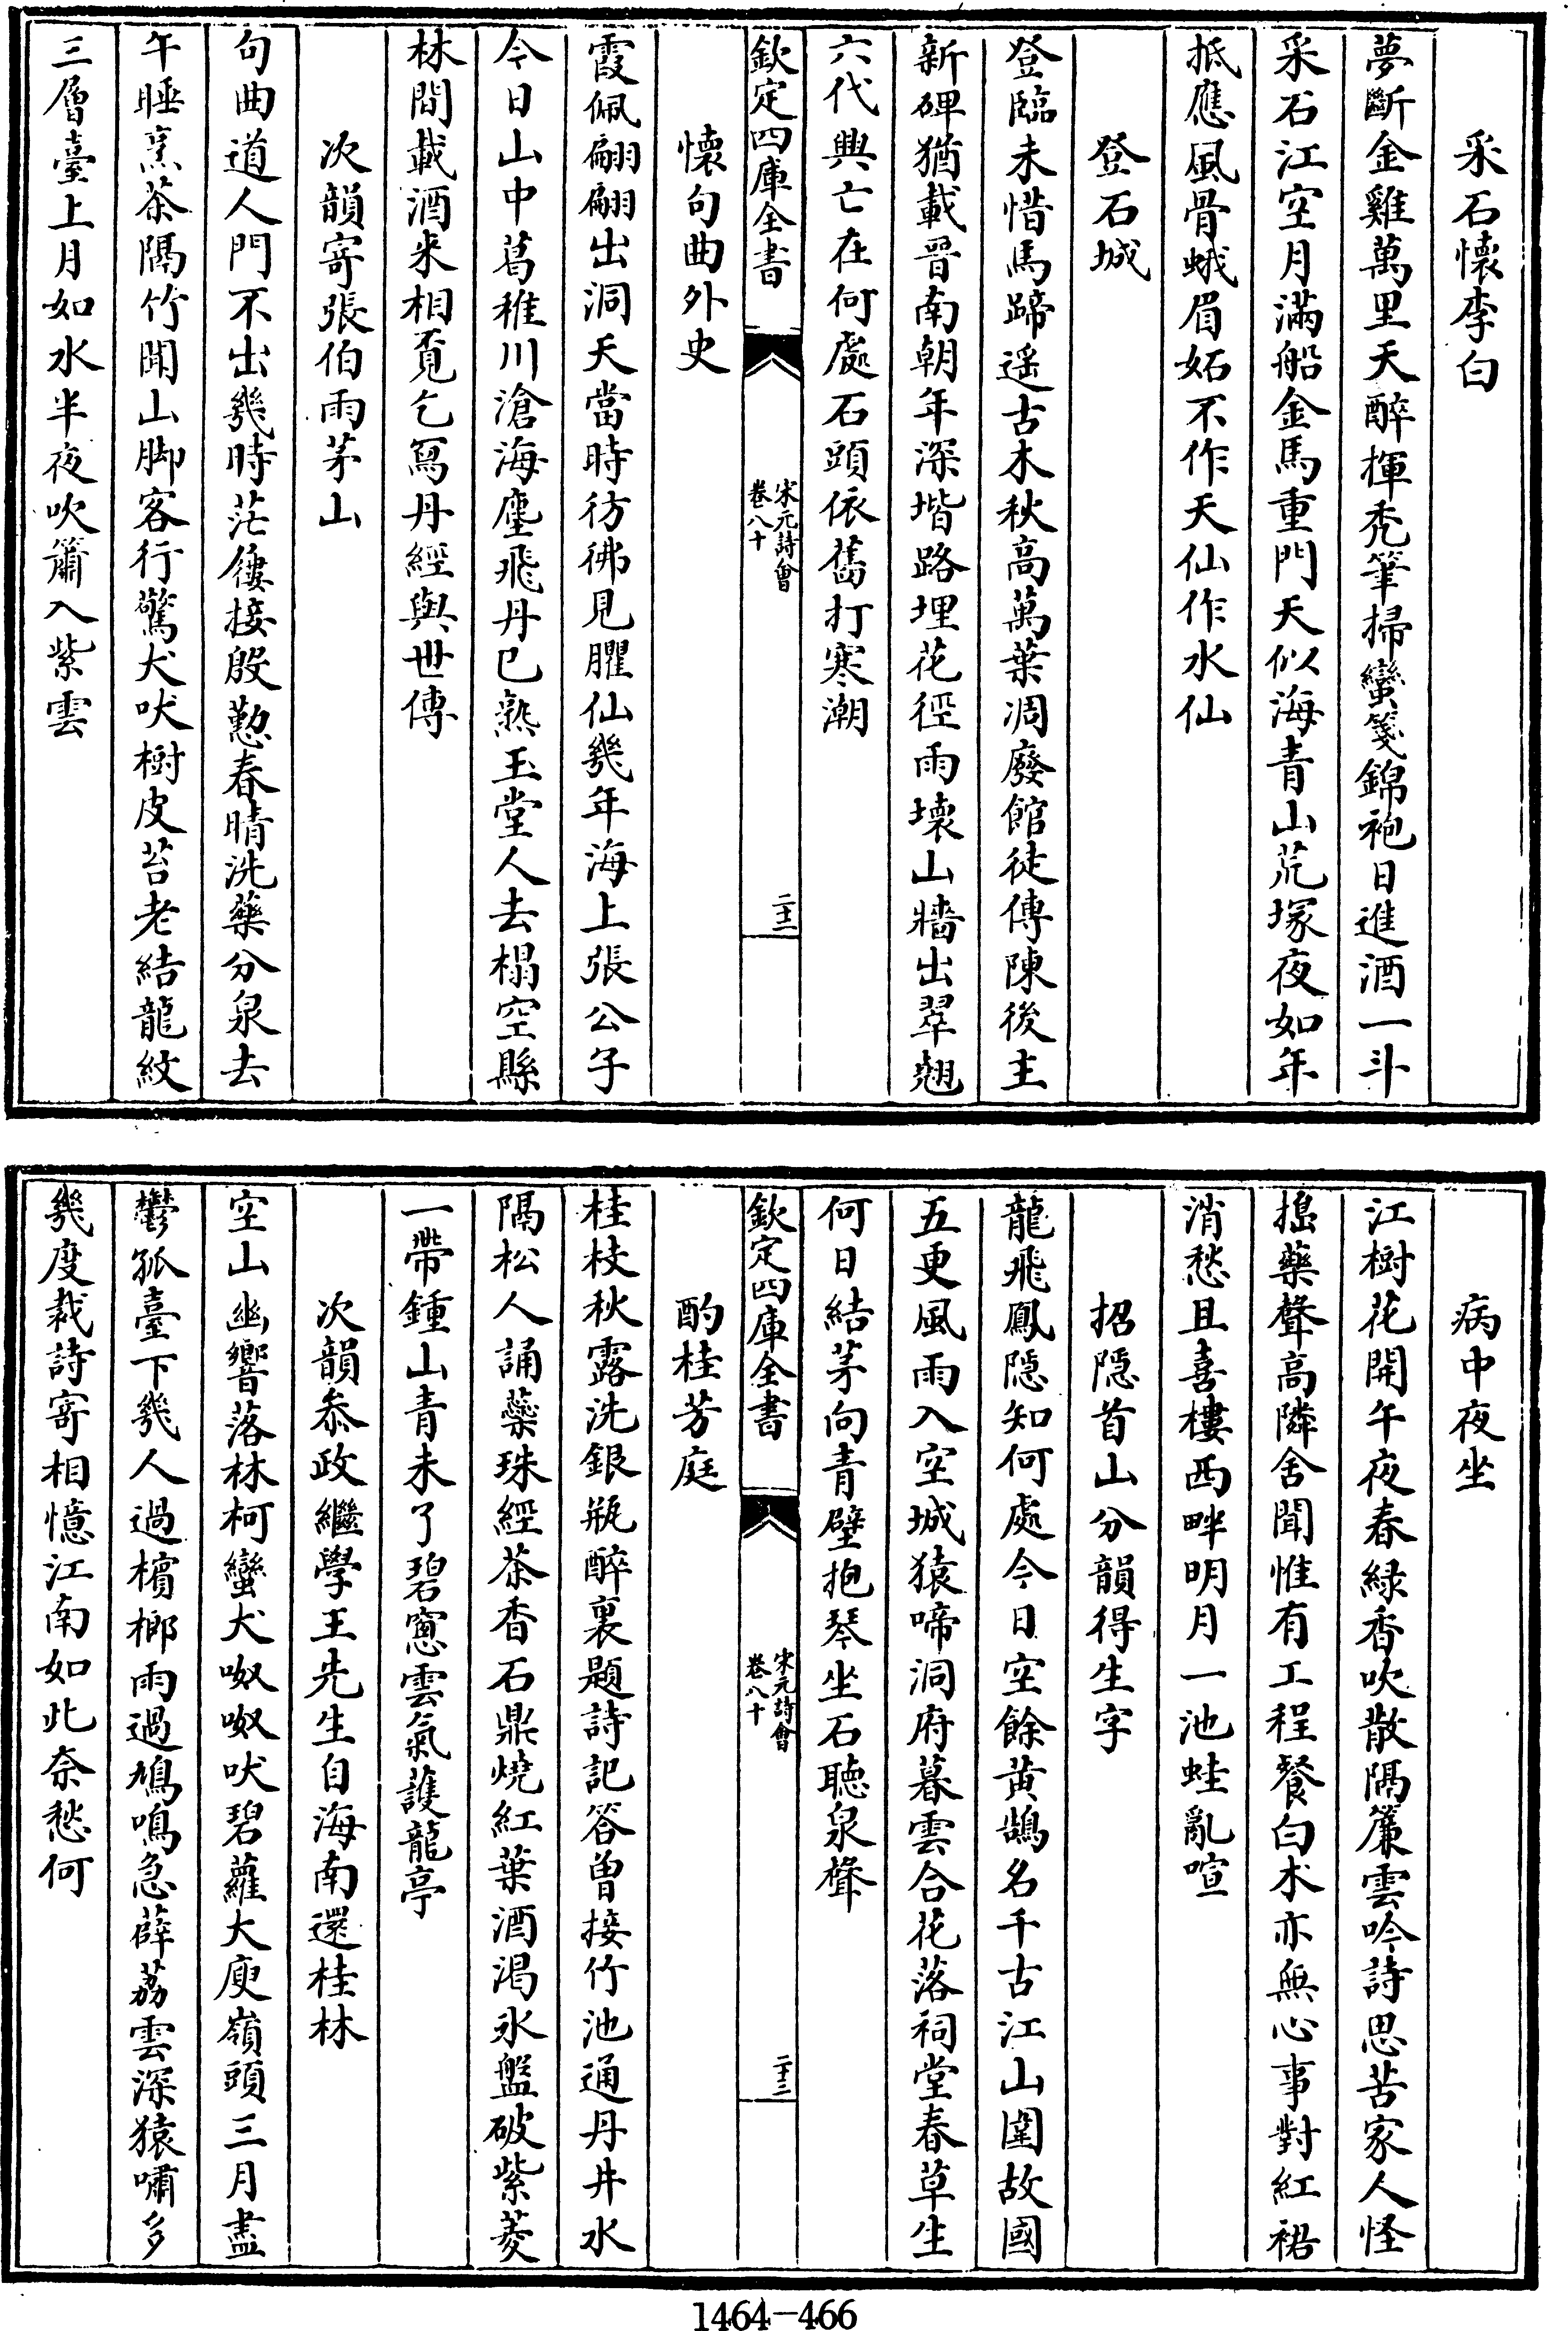 采石懷李白
夢斷金雞萬里天醉揮禿筆掃蠻箋錦袍日進酒一斗
采石江空月滿船金馬重門天似海青山荒塚夜如年
抵應風骨蛾眉妬不作天仙作水仙
登石城
登臨未惜馬蹄遥古木秋高萬葉凋廢館徒傳陳後主
新碑猶載晉南朝年深堦路埋花徑雨壞山牆出翠翹
六代興亡在何處石頭依舊打寒潮
欽定四庫全書
宋元詩會
卷八十
二十二
懷句曲外史
霞佩翩翩出洞天當時彷彿見臞仙幾年海上張公子
今日山中葛稚川滄海塵飛丹已熟玉堂人去榻空縣
林間載酒来相覓乞寫丹經與世傳
次韻寄張伯雨茅山
句曲道人門不出幾時茫僂接殷懃春晴洗藥分泉去
午睡烹茶隔竹聞山脚客行驚犬吠樹皮苔老結龍紋
三層臺上月如水半夜吹簫入紫雲
病中夜坐
江樹花開午夜春緑香吹散隔簾雲吟詩思苦家人怪
搗藥聲高隣舍聞惟有工程餐白术亦無心事對紅裙
消愁且喜樓西畔明月一池蛙亂喧
招隠首山分韻得生字
龍飛鳳隠知何處今日空餘黄鵠名千古江山圍故國
五更風雨入空城猿啼洞府暮雲合花落祠堂春草生
何日結茅向青壁抱琴坐石聴泉聲
欽定四庫全書
宋元詩會
卷八十
二十三
酌桂芳庭
桂枝秋露洗銀瓶醉裏題詩記答曽接竹池通丹井水
隔松人誦蘂珠經茶香石鼎燒紅葉酒渇氷盤破紫菱
一帶鍾山青未了碧窻雲氣護龍亭
次韻叅政繼學王先生自海南還桂林
空山幽響落林柯蠻犬呶呶吠碧蘿大庾嶺頭三月盡
鬱孤臺下幾人過檳榔雨過鳩鳴急薜荔雲深猿嘯多
幾度裁詩寄相憶江南如此奈愁何
1464-466